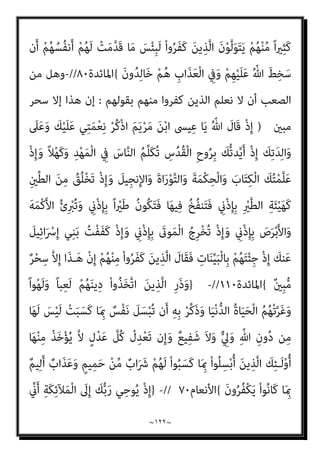 كَثِيراً مِّنْهُمْ يَتَوَلَّوْنَ الَّذِينَ كَفَرُواْ لَبِئْسَ مَا قَدَّمَتْ لَهُمْ أَنفُسُهُمْ أَن
سَخِطَ اللّهُ عَلَيْهِمْ وَفِي الْعَذَابِ هُمْ خَالِدُونَ {المائدة٨٠//-وهل من
الصعب أن لا نعلم الذين كفروا منهم بقولهم : إن هذا إلا سحر
مبين ( إِذْ قَالَ اللّهُ يَا عِيسى ابْنَ مَرْيَمَ اذْكُرْ نِعْمَتِي عَلَيْكَ وَعَلَى
وَالِدَتِكَ إِذْ أَيَّدتُّكَ بِرُوحِ الْقُدُسِ تُكَلِّمُ النَّاسَ فِي الْمَهْدِ وَكَهْلاً وَإِذْ
عَلَّمْتُكَ الْكِتَابَ وَالْحِكْمَةَ وَالتَّوْرَاةَ وَالإِنجِيلَ وَإِذْ تَخْلُقُ مِنَ الطِّينِ
كَهَيْئَةِ الطَّيْرِ بِإِذْنِي فَتَنفُخُ فِيهَا فَتَكُونُ طَيْراً بِإِذْنِي وَتُبْرِئُ الأَكْمَهَ
وَالأَبْرَصَ بِإِذْنِي وَإِذْ تُخْرِجُ الْمَوتَى بِإِذْنِي وَإِذْ كَفَفْتُ بَنِي إِسْرَائِيلَ
عَنكَ إِذْ جِئْتَهُمْ بِالْبَيِّنَاتِ فَقَالَ الَّذِينَ كَفَرُواْ مِنْهُمْ إِنْ هَـذَا إِلاَّ سِحْرٌ
مُّبِينٌ {المائدة١١٠//- {وَذَرِ الَّذِينَ اتَّخَذُواْ دِينَهُمْ لَعِباً وَلَهْواً
وَغَرَّتْهُمُ الْحَيَاةُ الدُّنْيَا وَذَكِّرْ بِهِ أَن تُبْسَلَ نَفْسٌ بِمَا كَسَبَتْ لَيْسَ لَهَا
مِن دُونِ اللّهِ وَلِيٌّ وَلاَ شَفِيعٌ وَإِن تَعْدِلْ كُلَّ عَدْلٍ لاَّ يُؤْخَذْ مِنْهَا
أُوْلَـئِكَ الَّذِينَ أُبْسِلُواْ بِمَا كَسَبُواْ لَهُمْ شَرَابٌ مِّنْ حَمِيمٍ وَعَذَابٌ أَلِيمٌ
بِمَا كَانُواْ يَكْفُرُونَ {الأنعام٧٠ //- {إِذْ يُوحِي رَبُّكَ إِلَى الْمَلآئِكَةِ أَنِّي
~١٢٢~